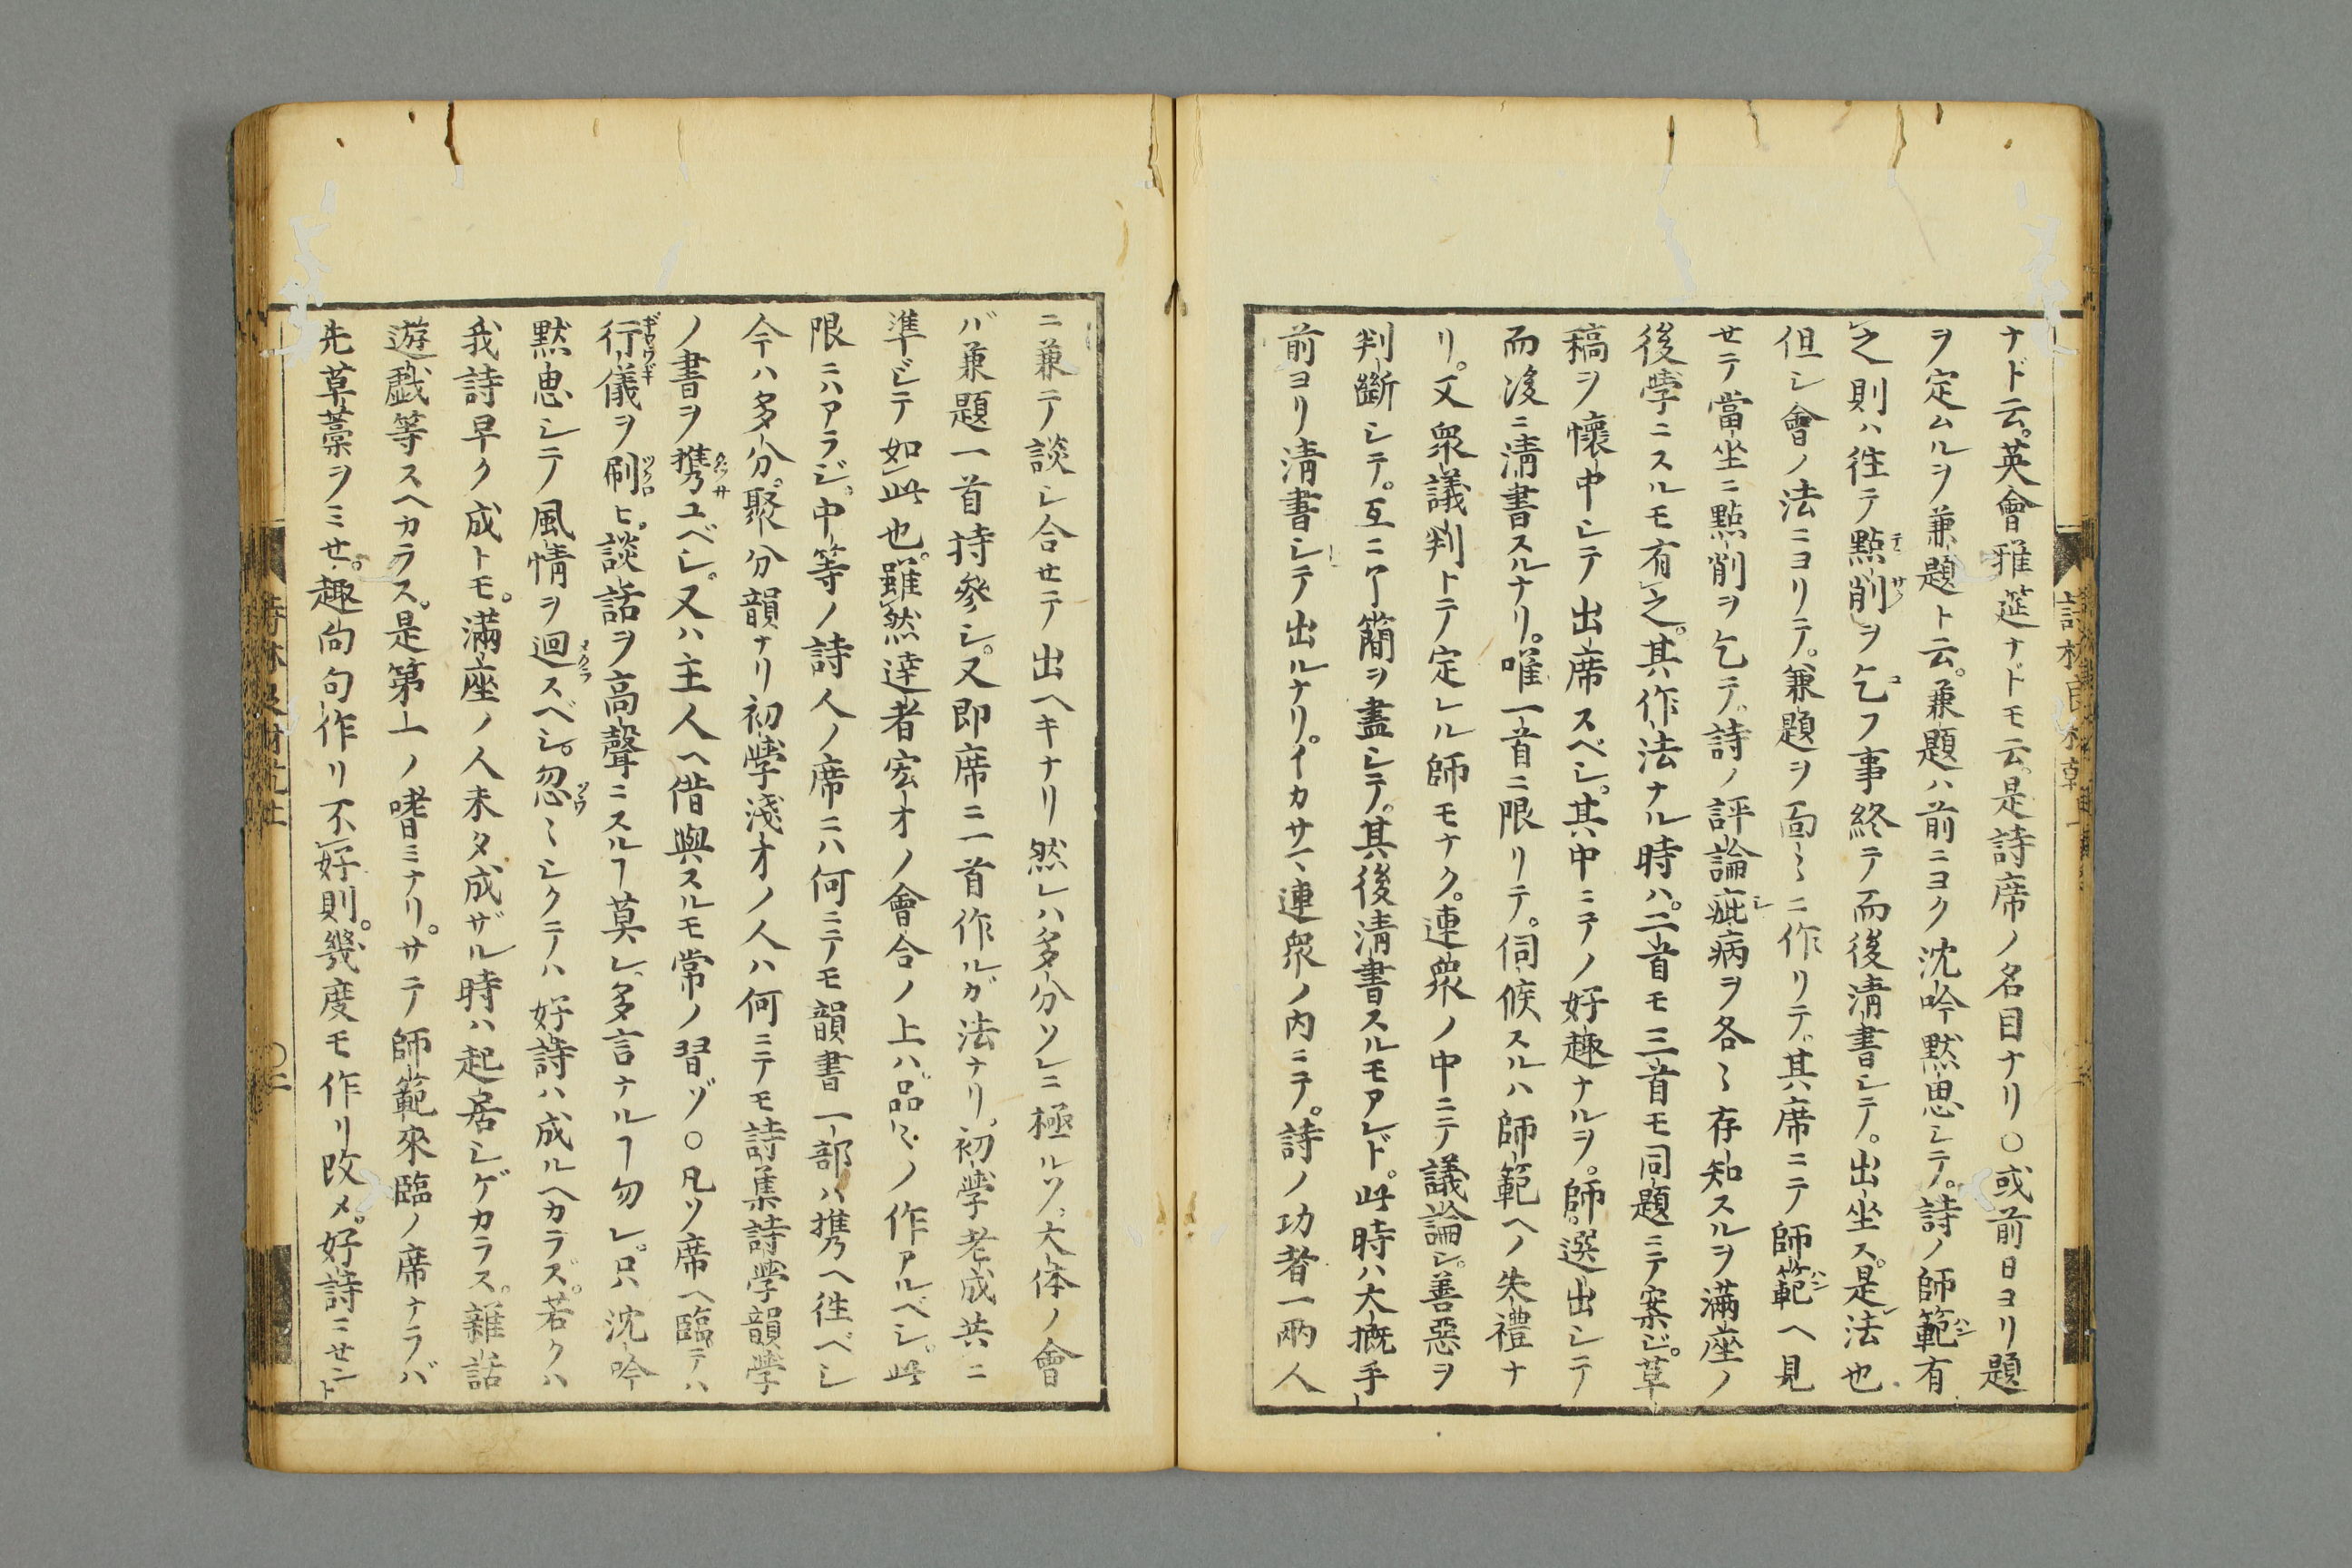 ナド云。英會雅莚ナドモ云。是詩席ノ名目ナリ○或前日ヨリ題
ヲ定ムルヲ兼題ト云。兼題ハ前ニヨク沈吟黙思シテ。詩ノ師範有
之則ハ往テ點削ヲ乞フ事終テ而後淸書シテ。出坐ス。是法也
但シ會ノ法ニヨリテ。兼題ヲ面〻ニ作リテ。其席ニテ師範ヘ見
セテ當坐ニ點削ヲ乞テ。詩ノ評論疵病ヲ各〻存知スルヲ滿座ノ
後學ニスルモ有之。其作法ナル時ハ。二首モ三首モ同題ニテ案ジ。草
稿ヲ懷中シテ出席スベシ。其中ニテノ好趣ナルヲ。師。選出シテ
而後ニ淸書スルナリ。唯一首ニ限リテ。伺候スルハ師範ヘノ失禮ナ
リ。又衆議判トテ定レル師モナク。連衆ノ中ニテ議論シ。善惡ヲ
判斷シテ。互ニ了簡ヲ盡シテ。其後淸書スルモアレド。此時ハ大概手
前ヨリ淸書シテ出ルナリ。イカサマ連衆ノ内ニテ。詩ノ功者一兩人
ニ兼テ談シ合セテ出ヘキナリ然レハ多分ソレニ極ルソ。大体ノ會
バ兼題一首持參シ。又即席ニ一首作ルガ法ナリ。初學老成共ニ
準ジテ如此也。雖然達者宏才ノ會合ノ上ハ。品〻ノ作アルベシ。此
限ニハアラジ。中等ノ詩人ノ席ニハ何ニテモ韻書一部ハ携ヘ往ベシ
今ハ多分。聚分韻ナリ初學淺才ノ人ハ何ニテモ詩集詩學韻學
ノ書ヲ携ユベシ。又ハ主人ヘ借與スルモ常ノ習ゾ○凡ソ席ヘ臨テハ
行儀ヲ刷ヒ。談話ヲ高聲ニスルヿ莫レ。多言ナルヿ勿レ。只ハ沈吟
黙思シテ風情ヲ迴スベシ。忽〻シクテハ好詩ハ成ルヘカラズ。若クハ
我詩早ク成トモ。滿座ノ人未タ成ザル時ハ起居シゲカラス。雜話
遊戯等スヘカラス。是第一ノ嗜ミナリ。サテ師範來臨ノ席ナラバ
先草藁ヲミセ。趣向句作リ不好則。幾度モ作リ改メ。好詩ニセント